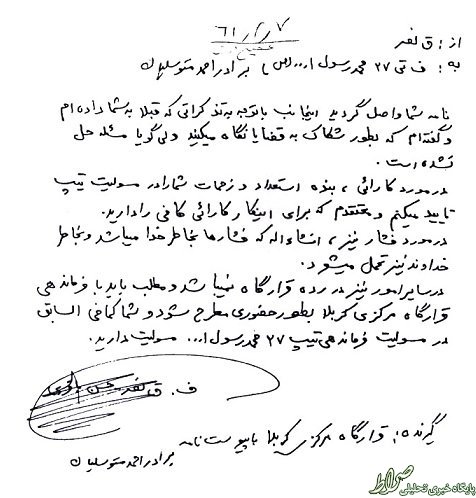 ۶۱/۲/۷
از: ق نصر
به: ف تی ۲۷ محمد رسول ا... (ص) برادر احمد متوسلیان
نامه شما واصل گردید اینجانب با توجه به تذکراتی که قبلا به شما داده ام
و گفته ام که بطور شکاک به قضایا نگاه میکنید ولی گویا مسئله حل
نشده است.
در مورد کارائی، بنده استعداد و زحمات شما را در مسولیت تیپ
تایید میکنم و معتقدم که برای اینکار کارائی کافی را دارید.
در مورد فشار نیز، انشاءاله که فشارها بخاطر خدا میباشد و بخاطر
خداوند نیز تحمل میشود.
در سایر امور نیز در رده قرارگاه نمیباشد و مطلب باید با فرماندهی
قرارگاه مرکزی کربلا بطور حضوری مطرح شود و شما کمافی السابق
در مسولیت فرماندهی تیپ ۲۷ محمد رسول ا... مسولیت دارید.
ف. ق نصر حسن
گیرنده: قرارگاه مرکزی کربلا با پیوست نامه
برادر احمد متوسلیان
صراط
پایگاه خبری تحلیلی